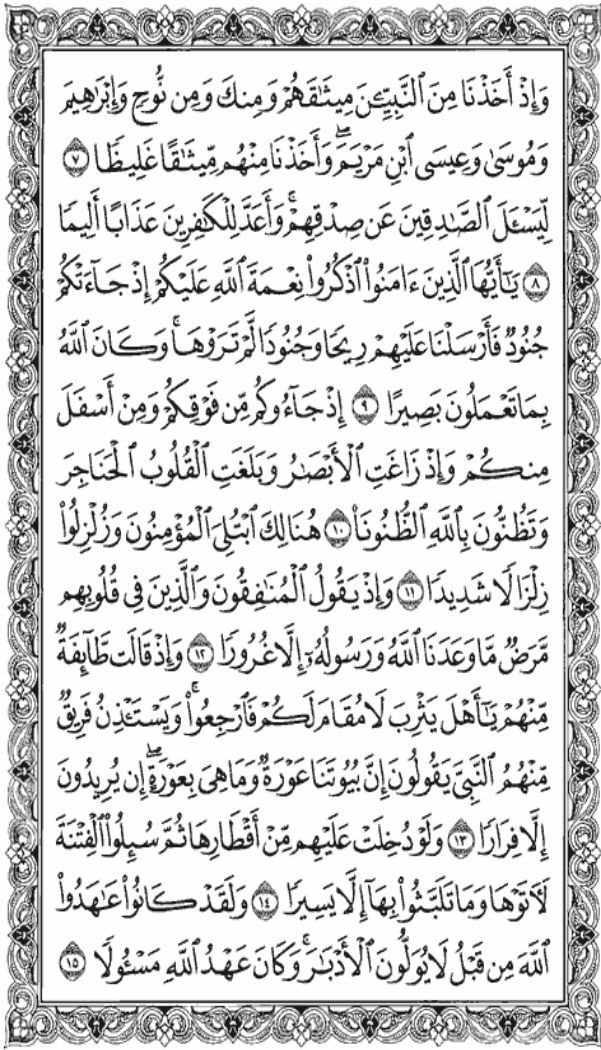 وَإِذْ أَخَذْنَا مِنَ ٱلنَّبِيِّـۧنَ مِيثَٰقَهُمْ وَمِنكَ وَمِن نُّوحٍ وَإِبْرَٰهِيمَ
وَمُوسَىٰ وَعِيسَى ٱبْنِ مَرْيَمَ ۖ وَأَخَذْنَا مِنْهُم مِّيثَٰقًا غَلِيظًا ٧
لِّيَسْـَٔلَ ٱلصَّٰدِقِينَ عَن صِدْقِهِمْ ۚ وَأَعَدَّ لِلْكَٰفِرِينَ عَذَابًا أَلِيمًا
٨ يَٰٓأَيُّهَا ٱلَّذِينَ ءَامَنُوا۟ ٱذْكُرُوا۟ نِعْمَةَ ٱللَّهِ عَلَيْكُمْ إِذْ جَآءَتْكُمْ
جُنُودٌ فَأَرْسَلْنَا عَلَيْهِمْ رِيحًا وَجُنُودًا لَّمْ تَرَوْهَا ۚ وَكَانَ ٱللَّهُ
بِمَا تَعْمَلُونَ بَصِيرًا ٩ إِذْ جَآءُوكُم مِّن فَوْقِكُمْ وَمِنْ أَسْفَلَ
مِنكُمْ وَإِذْ زَاغَتِ ٱلْأَبْصَٰرُ وَبَلَغَتِ ٱلْقُلُوبُ ٱلْحَنَاجِرَ
وَتَظُنُّونَ بِٱللَّهِ ٱلظُّنُونَا۠ ١٠ هُنَالِكَ ٱبْتُلِىَ ٱلْمُؤْمِنُونَ وَزُلْزِلُوا۟
زِلْزَالًا شَدِيدًا ١١ وَإِذْ يَقُولُ ٱلْمُنَٰفِقُونَ وَٱلَّذِينَ فِى قُلُوبِهِم
مَّرَضٌ مَّا وَعَدَنَا ٱللَّهُ وَرَسُولُهُۥٓ إِلَّا غُرُورًا ١٢ وَإِذْ قَالَت طَّآئِفَةٌ
مِّنْهُمْ يَٰٓأَهْلَ يَثْرِبَ لَا مُقَامَ لَكُمْ فَٱرْجِعُوا۟ ۚ وَيَسْتَـْٔذِنُ فَرِيقٌ
مِّنْهُمُ ٱلنَّبِىَّ يَقُولُونَ إِنَّ بُيُوتَنَا عَوْرَةٌ وَمَا هِىَ بِعَوْرَةٍ ۖ إِن يُرِيدُونَ
إِلَّا فِرَارًا ١٣ وَلَوْ دُخِلَتْ عَلَيْهِم مِّنْ أَقْطَارِهَا ثُمَّ سُئِلُوا۟ ٱلْفِتْنَةَ
لَـَٔاتَوْهَا وَمَا تَلَبَّثُوا۟ بِهَآ إِلَّا يَسِيرًا ١٤ وَلَقَدْ كَانُوا۟ عَٰهَدُوا۟
ٱللَّهَ مِن قَبْلُ لَا يُوَلُّونَ ٱلْأَدْبَٰرَ ۚ وَكَانَ عَهْدُ ٱللَّهِ مَسْـُٔولًا ١٥